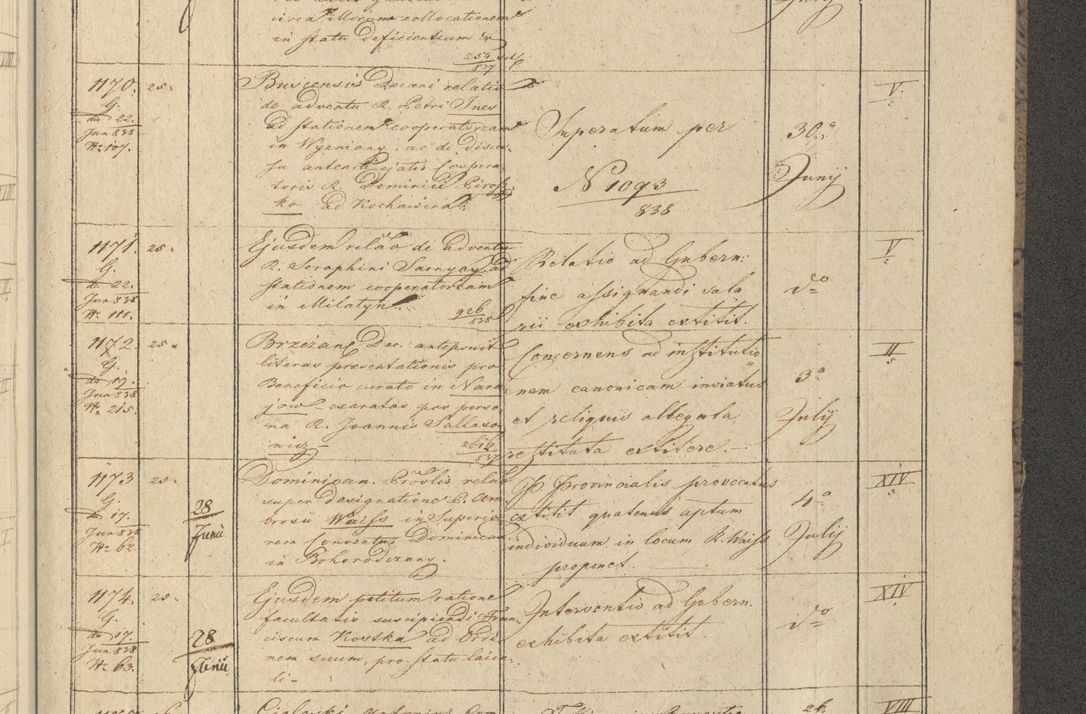 circa illorum collocationem
in statu deficientium &
1170. 25.
G.
do 22.
Jun 838
No 107.
Buscensis Decani relatio
de adventu R. Petri Ines
ad stationem cooperatoream
in Wyzniany, ac de disces
su anteactejatis Coopera
toris R. Dominici
ko ad
Superatum per
No 1093
838
30a
Junij
V.
1171. 25.
G.
do 22.
Jun 838
No 111.
Ejusdem relāo de adventu
R. Seraphini Sarnyay ad
stationem cooperatoream
in Milatyn.
Relatio ad Gubern:
fine assignandi sala
rii exhibita extitit.
do
V
1172. 25.
G.
do 19.
Jun 838
No 215.
Brzezan. Dec. anteponit
literas presentationis pro
Beneficio curato in Nara
jow exaratas pro perso
na R. Joannis Sallaso
wicz
Concernens ad institutio
nem canonicam inviatus
et reliquis allegata
restituta extitere.
3a
Julij
II
1173 25.
G.
do 17.
Jun 838
No 62.
28
Junii
Dominican. Provlis relat
super designatione P. Am
brosii Waiss in Superio
rem Conventus Dominicani
in Bohorodczany.
P. Provincialis provocatus
extitit quatenus aptum
individuum in locum R. Waiss
proponet.
4a
Julij
XIV
1174. 25.
G.
do 17.
Jun 838
No 63.
28
Junii
Ejusdem petitum ratione
facultatis suscipiendi Fran
ciscum Kostka ad Ordi
nem suum, pro statu laica
li
Interventio ad Gubern.
exhibita extitit.
do
XIV
26
VIII